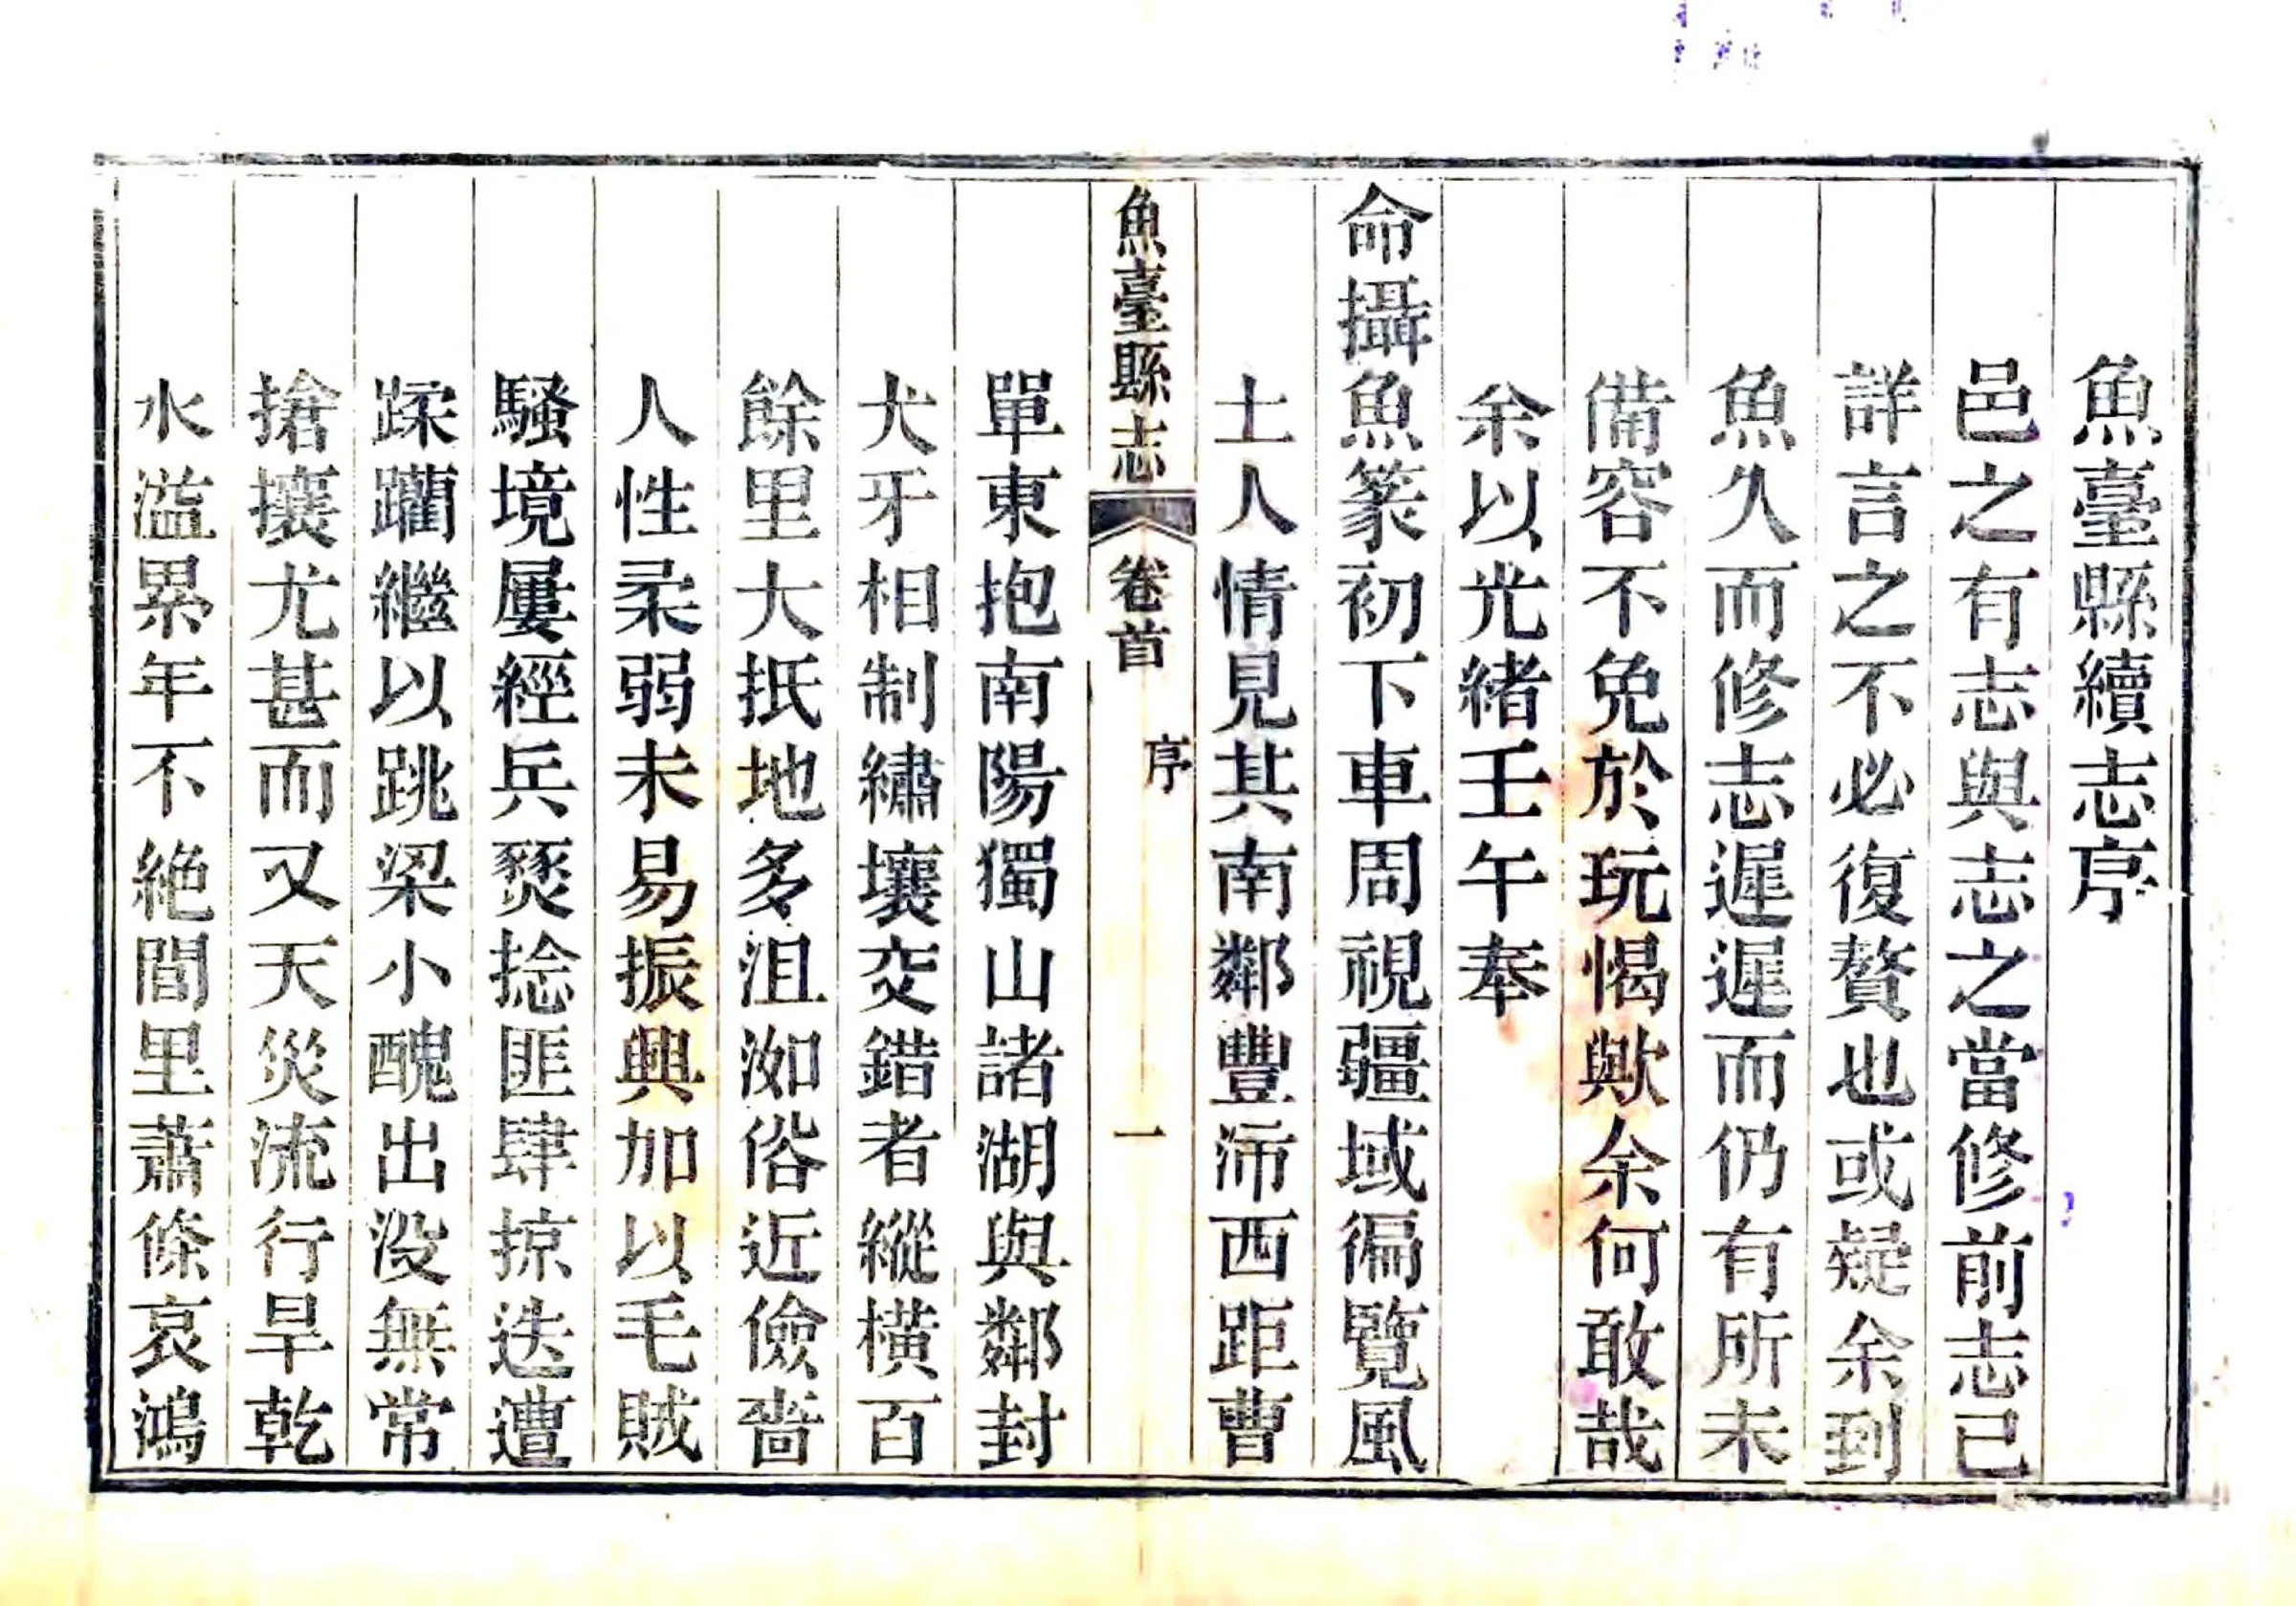 魚臺縣續志序
邑之有志與志之當修前志已
詳言之不必復贅也或疑余到
魚久而修志遲遲而仍有所未
備容不免於玩愒歟余何敢哉
余以光緒壬午奉
命攝魚篆初下車周視疆域徧覽風
土人情見其南鄰豐沛西距曹
魚臺縣志 卷首 序 一
單東抱南陽獨山諸湖與鄰封
犬牙相制繡壤交錯者縱橫百
餘里大抵地多沮洳俗近儉嗇
人性柔弱未易振興加以毛賊
騷境屢經兵燹捻匪肆掠迭遭
蹂躪繼以跳梁小醜出没無常
搶攘尤甚而又天災流行旱乾
水溢累年不絶閭里蕭條哀鴻